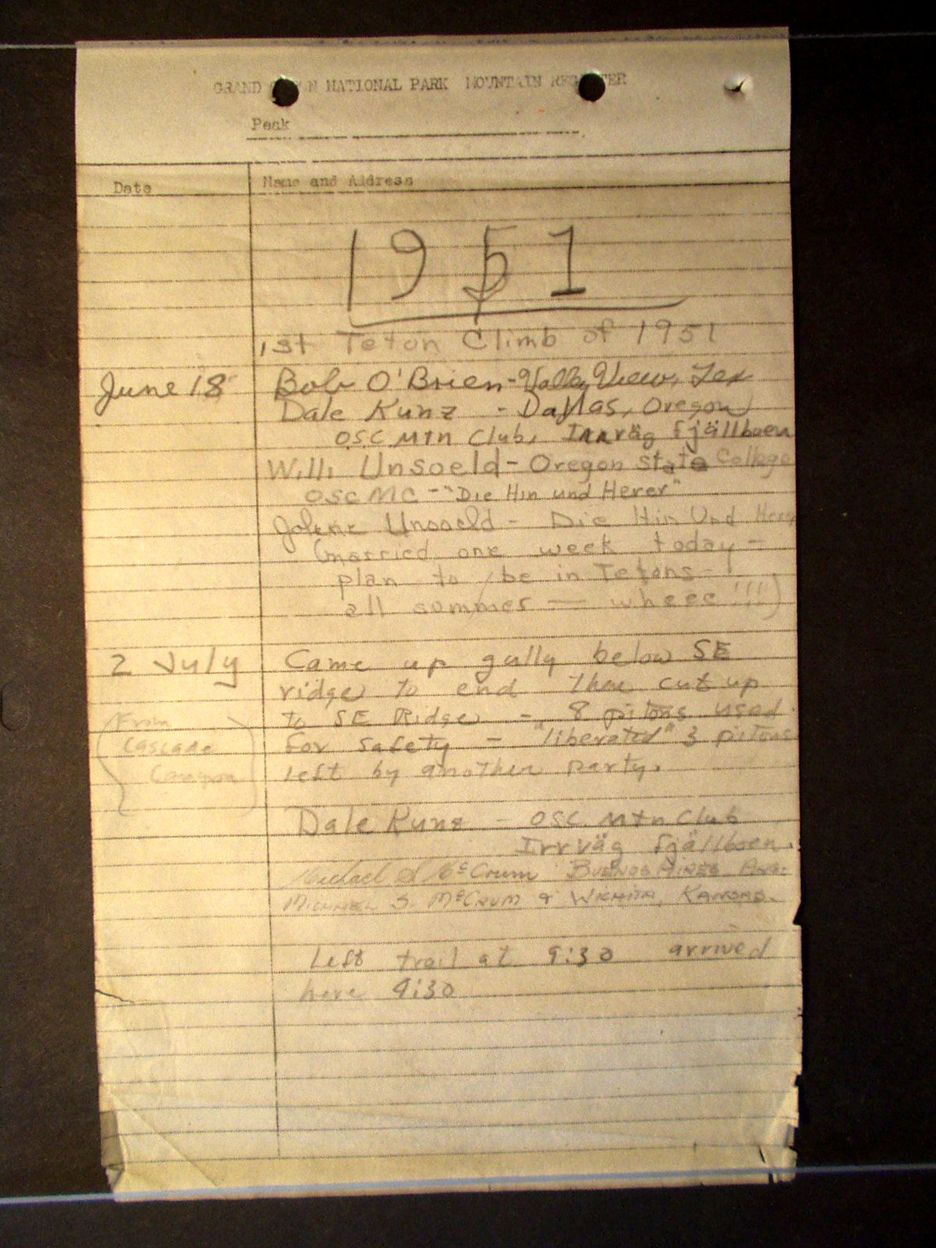 GRAND TETON NATIONAL PARK MOUNTAIN REGISTER
Peak
Date Name and Address
1951
1st Teton Climb of 1951
June 18 Bob O'Brien - Valley View, Tex
Dale Kunz - Dallas, Oregon
OSC Mtn Club, Irrväg fjällboen
Willi Unsoeld - Oregon State College
OSC MC - "Die Hin und Herer"
Jolene Unsoeld - Die Hin Und Herer
(married one week today -
plan to be in Tetons -
all summer — wheee!!!)
2 July Came up gully below SE
ridge to end then cut up
to SE Ridge - 8 pitons used
(From Cascade Canyon) for safety - "liberated" 3 pitons
left by another party.
Dale Kunz - OSC Mtn Club
Irrväg fjällboen.
Michael S McCrum BUENOS AIRES ARG.
MICHAEL S. McCRUM & WICHITA, KANSAS.
left trail at 9:30 arrived
here 9:30